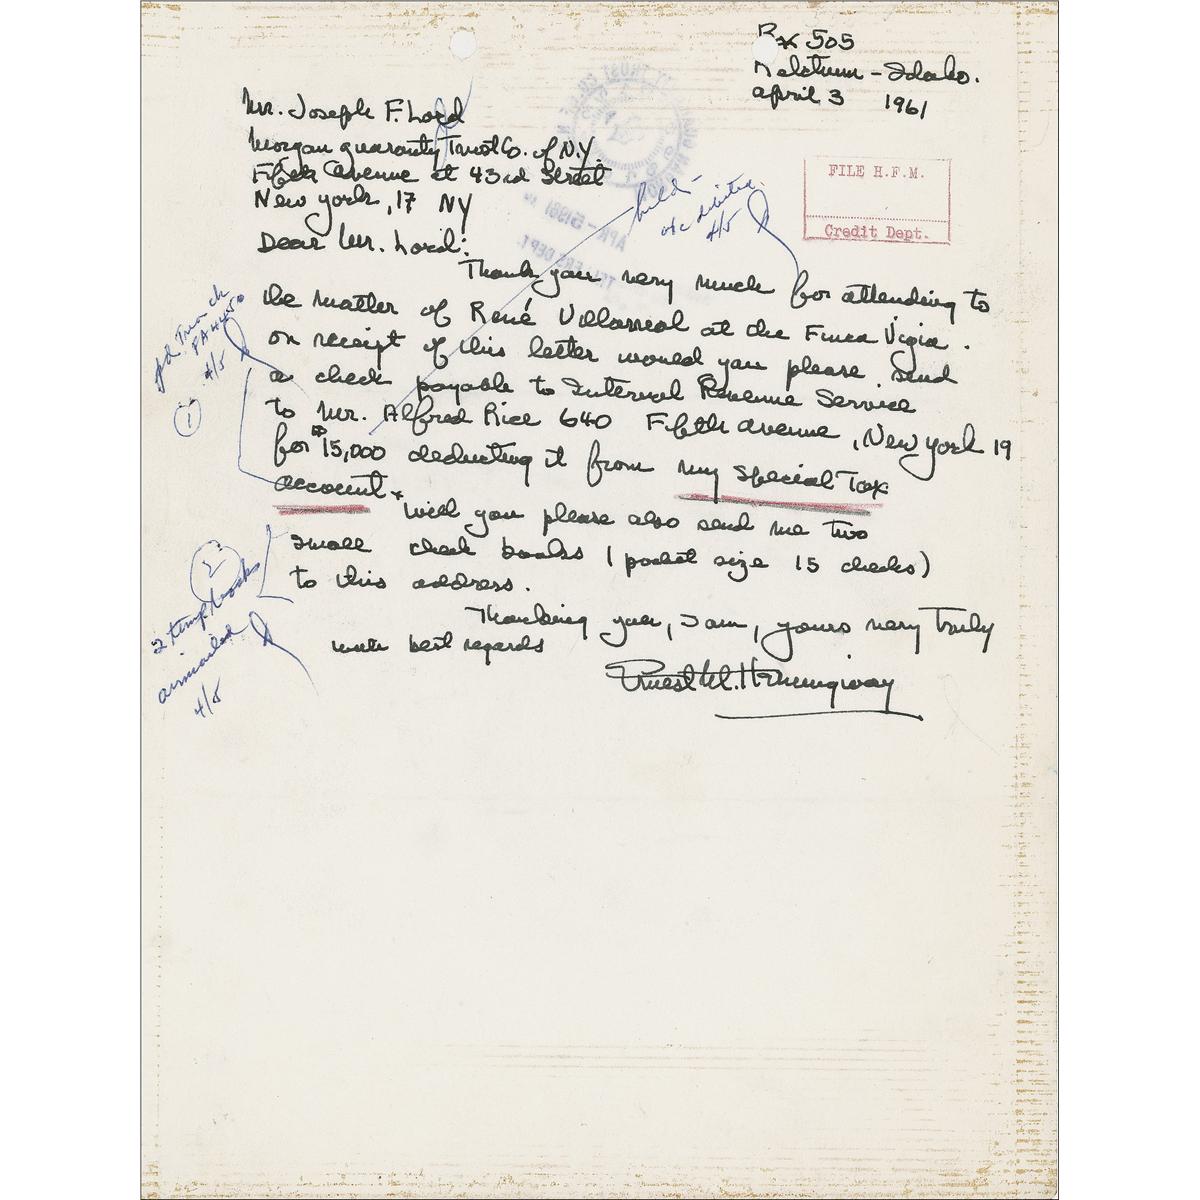 Box 505
Ketchum - Idaho.
April 3 1961
Mr. Joseph F. Lord
Morgan Guaranty Trust Co. of N.Y.
Fifth Avenue at 43rd Street
New York, 17 NY
FILE H.F.M.
Credit Dept.
APR - 5 1961
TELLERS DEPT.
held -
a/c debited.
4/5
Dear Mr. Lord:
Thank you very much for attending to
the matter of René Villarreal at the Finca Vigia.
on receipt of this letter would you please send
a check payable to Internal Revenue Service
to Mr. Alfred Rice 640 Fifth Avenue, New York 19
for $15,000 deducting it from my Special Tax
account.
Will you please also send me two
small check books (pocket size 15 checks)
to this address.
Thanking you, I am, yours very truly
with best regards
Ernest M. Hemingway
4/5
1
2
2 temp books
airmailed
4/5